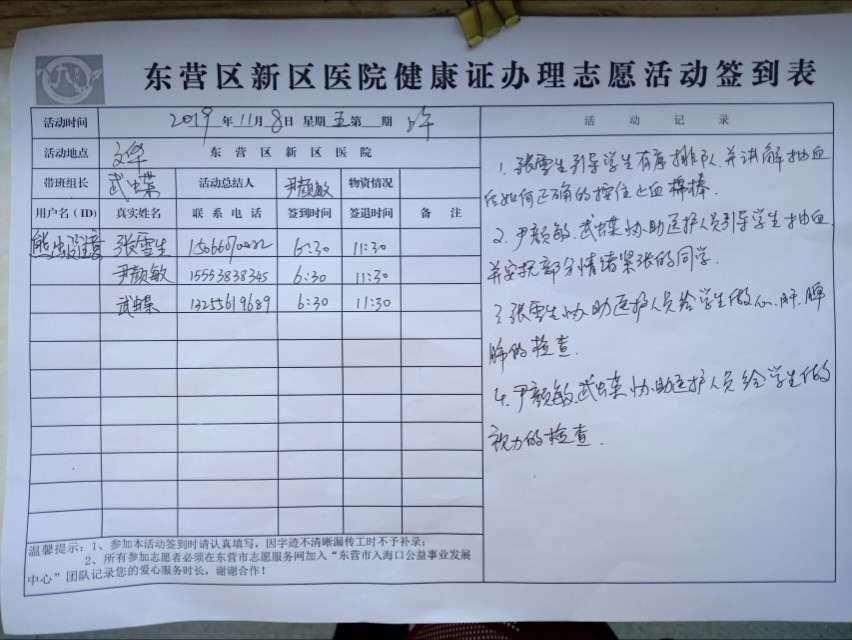 东营区新区医院健康证办理志愿活动签到表
活动时间 2019年11月8日 星期五第 期
活动地点 文华 东营区新区医院
带班组长 武蝶 活动总结人 尹颜敏 物资情况
用户名（ID） 真实姓名 联系电话 签到时间 签退时间 备注
张雪生 6:30 11:30
尹颜敏 15553838345 6:30 11:30
武蝶 13255619689 6:30 11:30
温馨提示：1、参加本活动签到时请认真填写，因字迹不清晰漏传工时不予补录；
2、所有参加志愿者必须在东营市志愿服务网加入“东营市入海口公益事业发展
中心”团队记录您的爱心服务时长，谢谢合作！
活动记录
1.张雪生引导学生有序排队.并讲解抽血
后如何正确的按住止血棉棒.
2.尹颜敏.武蝶协助医护人员引导学生抽血
并安抚部分情绪紧张的同学.
3.张雪生协助医护人员给学生做心.肝.脾
肺的检查.
4.尹颜敏.武蝶协助医护人员给学生做
视力的检查.